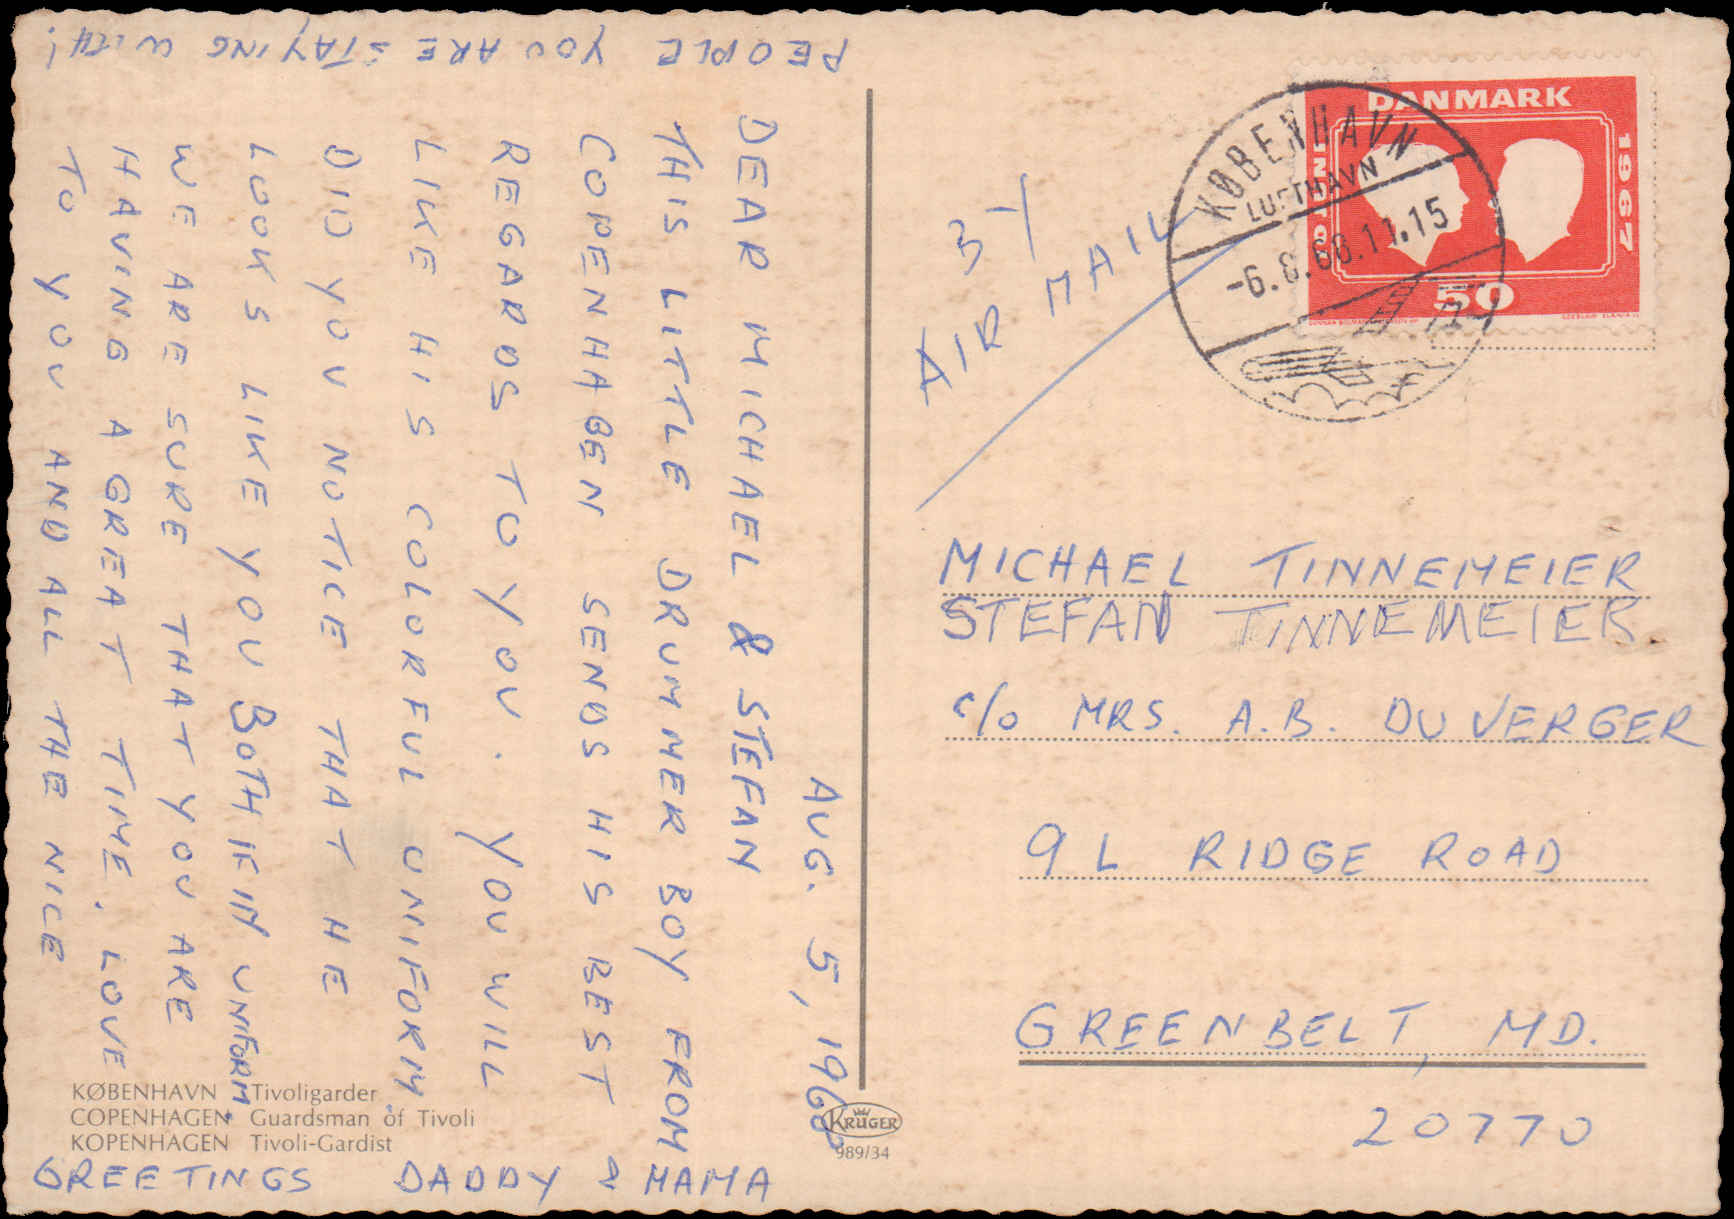 AUG. 5, 1968
DEAR MICHAEL & STEFAN
THIS LITTLE DRUMMER BOY FROM
COPENHAGEN SENDS HIS BEST
REGARDS TO YOU. YOU WILL
LIKE HIS COLORFUL UNIFORM.
DID YOU NOTICE THAT HE
LOOKS LIKE YOU BOTH IF IN UNIFORM.
WE ARE SURE THAT YOU ARE
HAVING A GREAT TIME. LOVE
TO YOU AND ALL THE NICE
PEOPLE YOU ARE STAYING WITH!
GREETINGS DADDY & MAMA
KØBENHAVN Tivoligarder
COPENHAGEN Guardsman of Tivoli
KOPENHAGEN Tivoli-Gardist
KRÜGER
989/34
DANMARK
10 JUNI
1967
50
KØBENHAVN
LUFTHAVN
-6.8.68.11.15
AIR MAIL
MICHAEL TINNEMEIER
STEFAN TINNEMEIER
c/o MRS. A.B. DUVERGER
9 L RIDGE ROAD
GREENBELT, MD.
20770